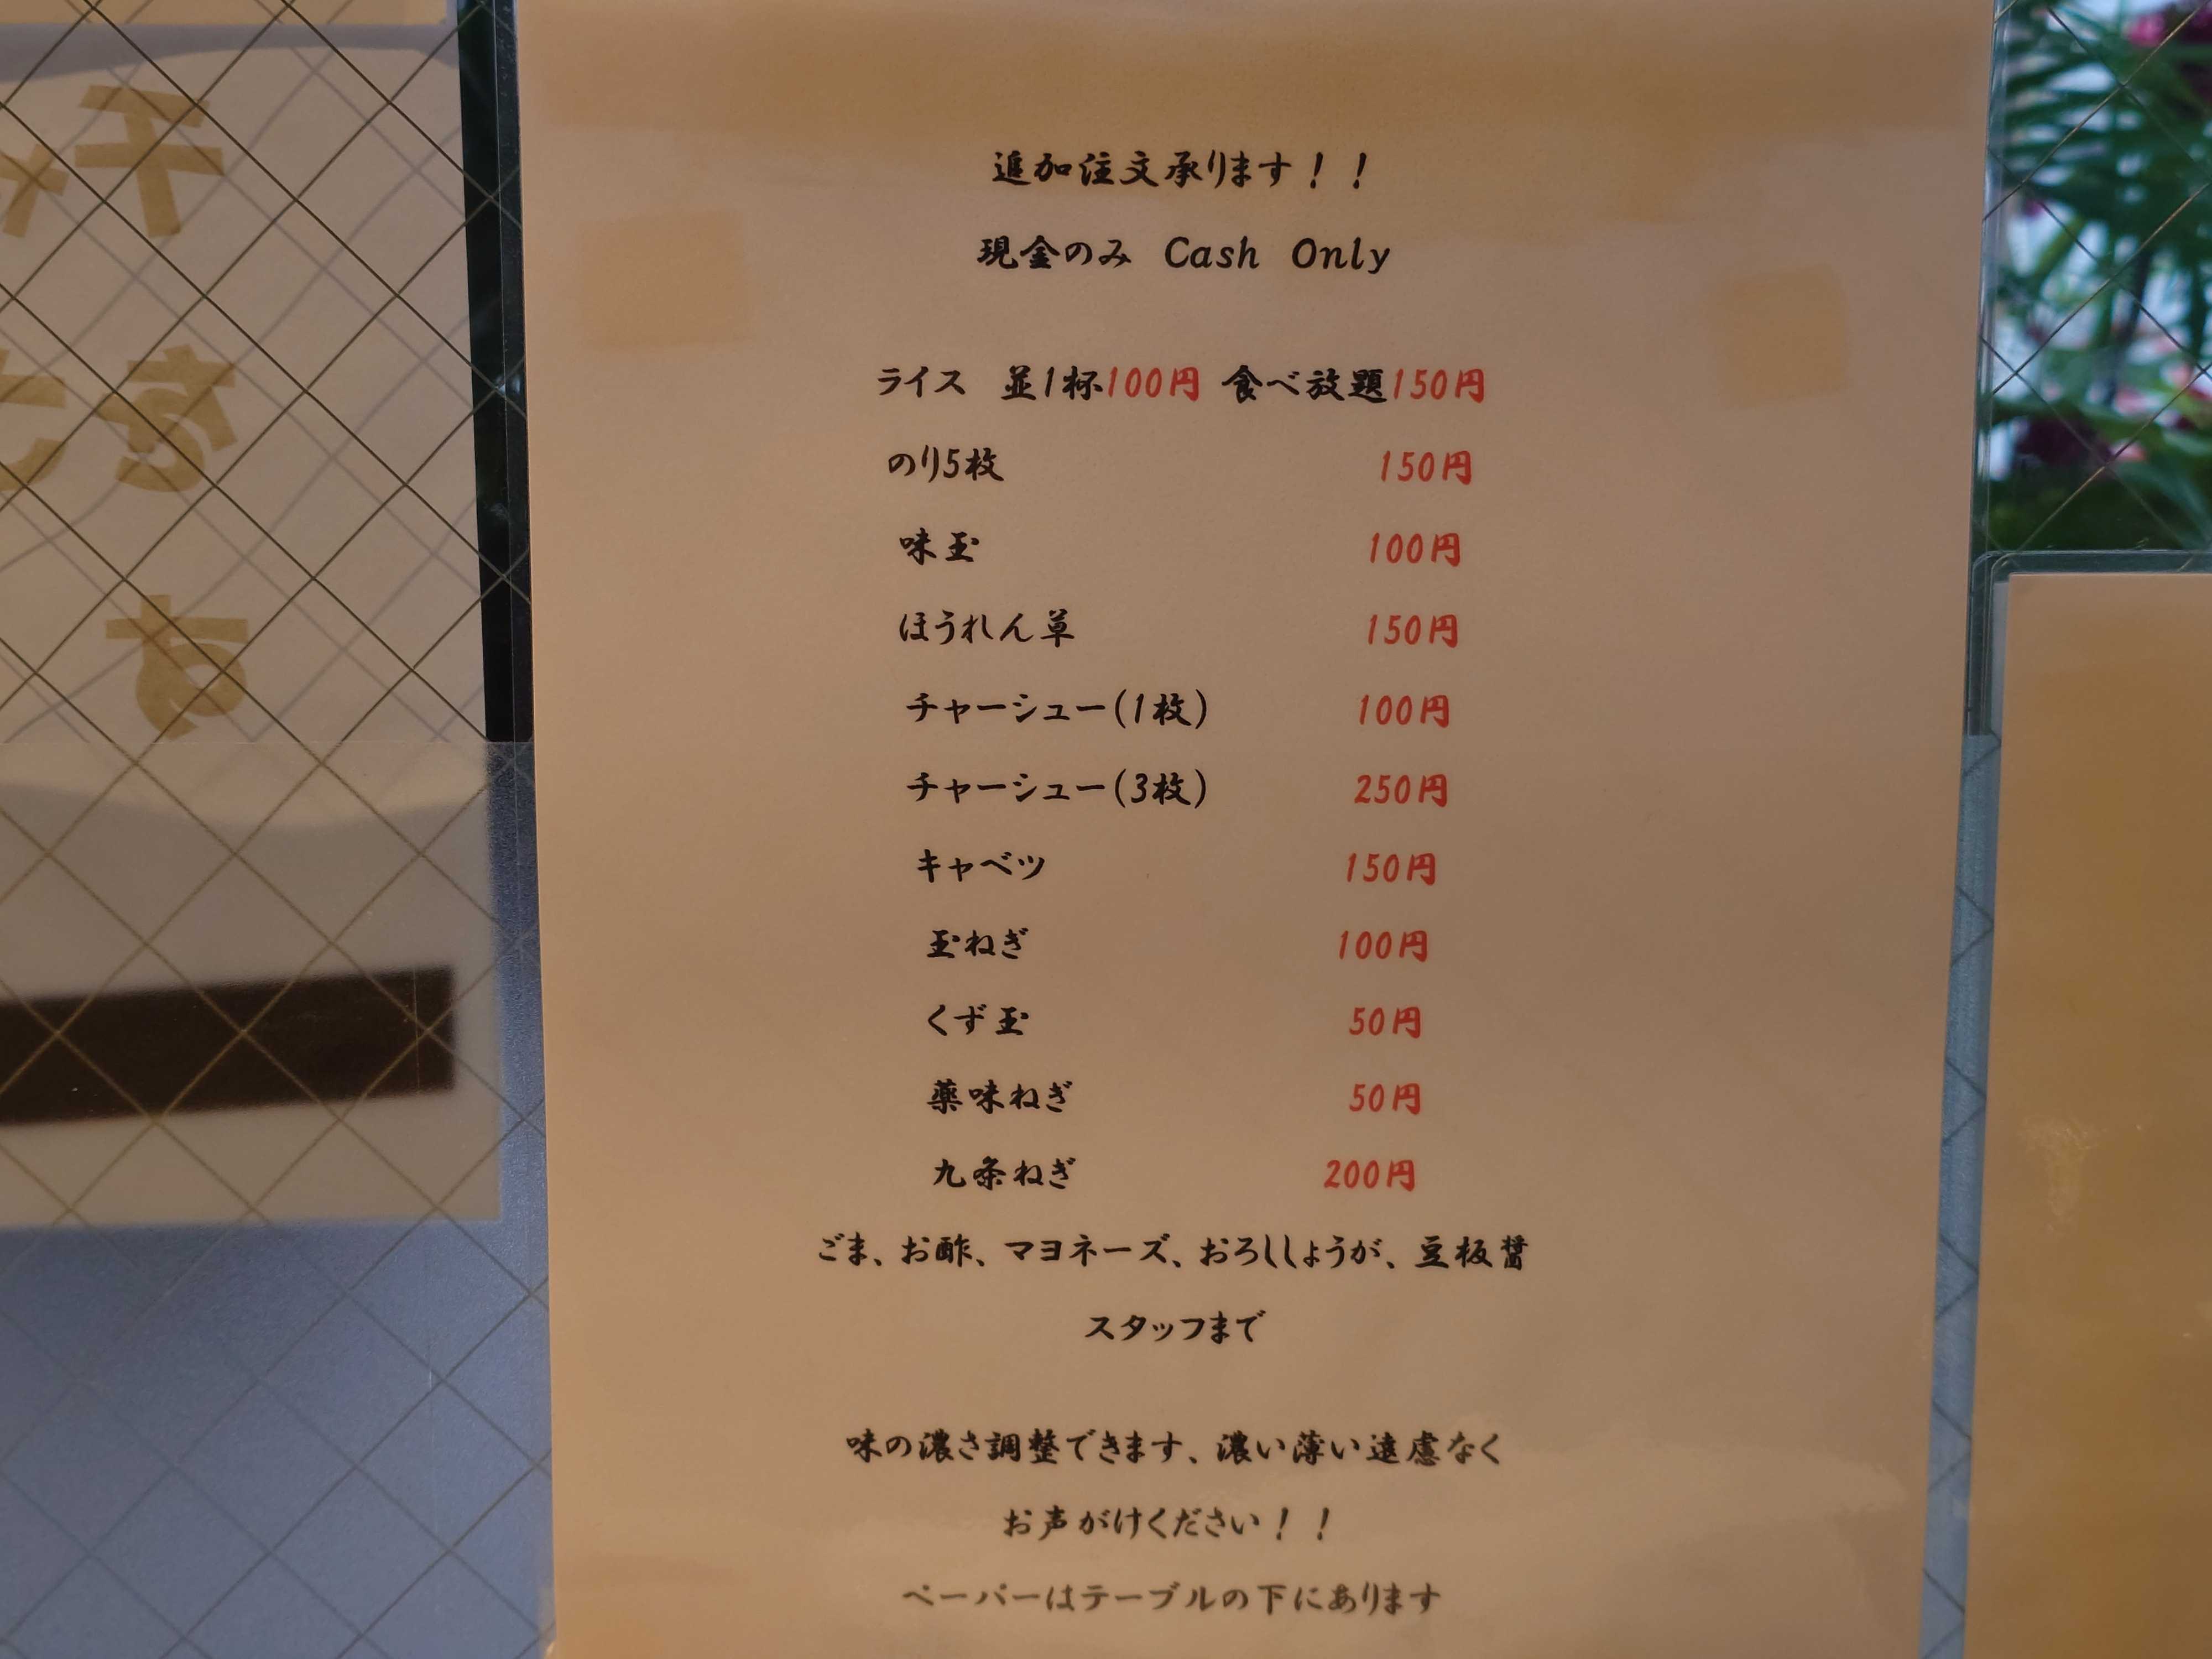 追加注文承ります！！
現金のみ Cash Only
ライス 並1杯100円 食べ放題150円
のり5枚 150円
味玉 100円
ほうれん草 150円
チャーシュー(1枚) 100円
チャーシュー(3枚) 250円
キャベツ 150円
玉ねぎ 100円
くず玉 50円
薬味ねぎ 50円
九条ねぎ 200円
ごま、お酢、マヨネーズ、おろししょうが、豆板醤
スタッフまで
味の濃さ調整できます、濃い薄い遠慮なく
お声がけください！！
ペーパーはテーブルの下にあります